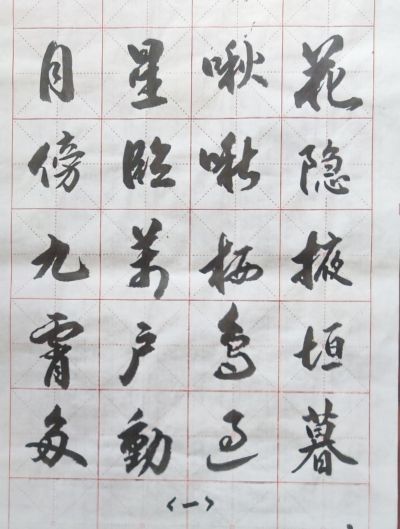 花隐掖垣暮
啾啾栖鸟过
星临万户動
月傍九霄多
<一>